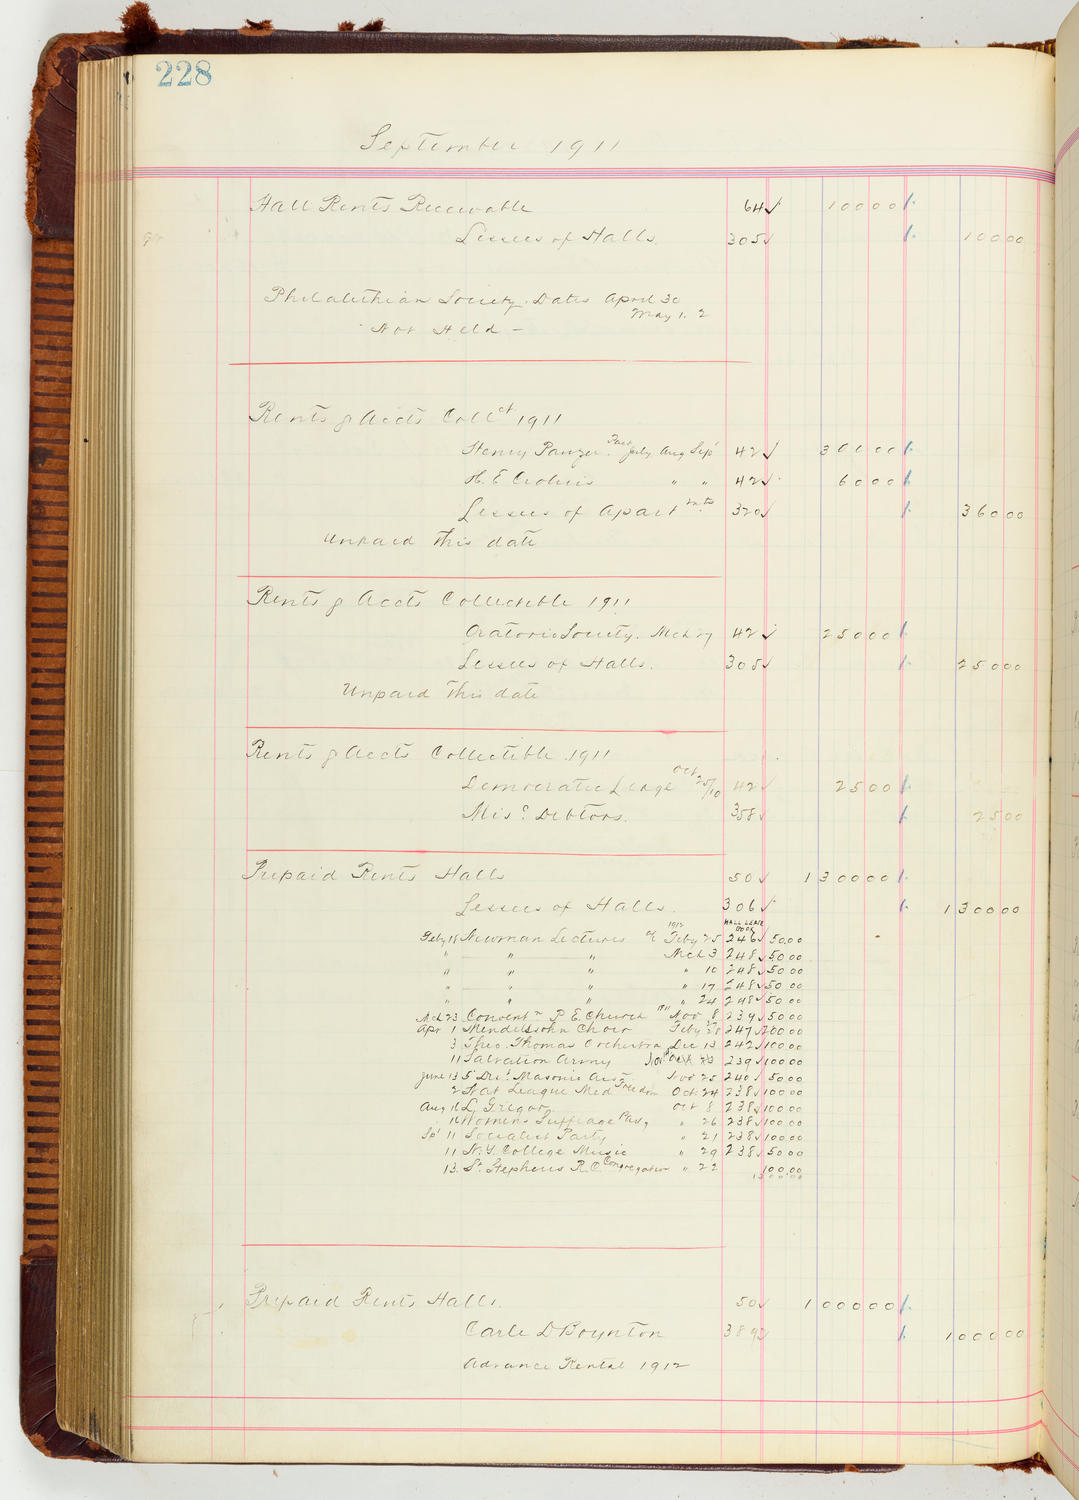 228
September 1911
Hall Rents Receivable 64 ✓ 100 00
Lessees of Halls. 305 ✓ 100 00
Philalethian Society. Dates April 30
May 1. 2
Not Held —
Rents & Accts Coll ct 1911
Henry Panzer. Part July Aug Sep' 42 ✓ 300 00
H. E. " " 42 ✓ 60 00
Lessees of Apart mts 320 ✓ 360 00
Unpaid this date
Rents & Accts Collectible 1911
Oratorio Society. Mch 27 42 ✓ 250 00
Lessees of Halls. 305 ✓ 250 00
Unpaid this date
Rents & Accts Collectible 1911
Democratic Leage Oct 25/10 42 ✓ 25 00
Mis c Debtors. 358 ✓ 25 00
Prepaid Rents Halls 50 ✓ 1300 00
Lessees of Halls. 306 ✓ 1300 00
1912 HALL LEASE BOOK
Feby 18 Newman Lectures of Feby 25 246 ✓ 50.00
" " " Mch 3 248 ✓ 50 00
" " " " 10 248 ✓ 50 00
" " " " 17 248 ✓ 50 00
" " " " 24 248 ✓ 50 00
Mch 23 Convent n P. E. Church 1911 Nov 8 239 ✓ 50.00
Apr 1 Mendelssohn Choir Feby 28 247 ✓ 200 00
3 Theo. Thomas Orchestra Dec 13 242 ✓ 100 00
11 Salvation Army 239 ✓ 100 00
June 13 5" Dis t Masonic Nov 25 240 ✓ 50.00
2 Nat League Med Freedom Oct. 24 238 ✓ 100 00
Aug 16 L. Gregor Oct 8 238 ✓ 100 00
16 Womens Suffrage Pty " 26 238 ✓ 100.00
Sp' 11 Socialist Party " 21 238 ✓ 100 00
11 N. Y. College Music " 29 238 ✓ 50.00
13. St. Stephens R. C. Congregation " 22 100.00
1300 00
Prepaid Rents Halls. 50 ✓ 1000 00
Carle D Boynton 389 ✓ 1000 00
Advance Rental 1912